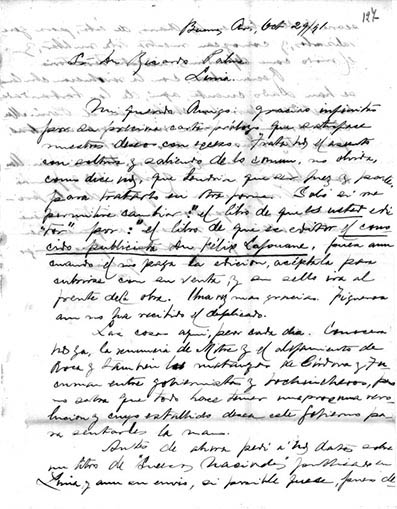 127
Buenos Aires, Oct 29/91.
Sr. Dn Ricardo Palma
Lima
Mi querido Amigo: gracias infinitas
por su preciosa carta prólogo que satisface
nuestros deseos con exceso. Trata Ud el asunto
con soltura y saliendo de lo comun, no obsta,
como dice Ud, que tendria que ser juez y parte
para tratarlo en otra forma. Solo si me
permitire cambiar: "el libro de que es usted edi-
tor" por: el libro de que es editor el cono
cido publicista don Felix Lajouane, pues aun
cuando el no paga la edicion, acéptala para
cubrirse con su venta, y su sello irá al
frente de la obra. Una vez mas gracias. Figueroa
aun no ha recibido el duplicado.
Las cosas aqui, peor cada dia. Conocerá
Ud ya, la renuncia de Mitre y el
Roca y tambien las matanzas de Córdova y Tu
cuman entre gobiernistas y
no sobra que todo hace temer una proxima revo-
lucion y cuyo estallido desea este gobierno pa
ra sentarles la mano.
Antes de ahora pedí a Ud datos sobre
un libro de Nacional publicado en
Lima y aun su envio, si posible fuese, pues de